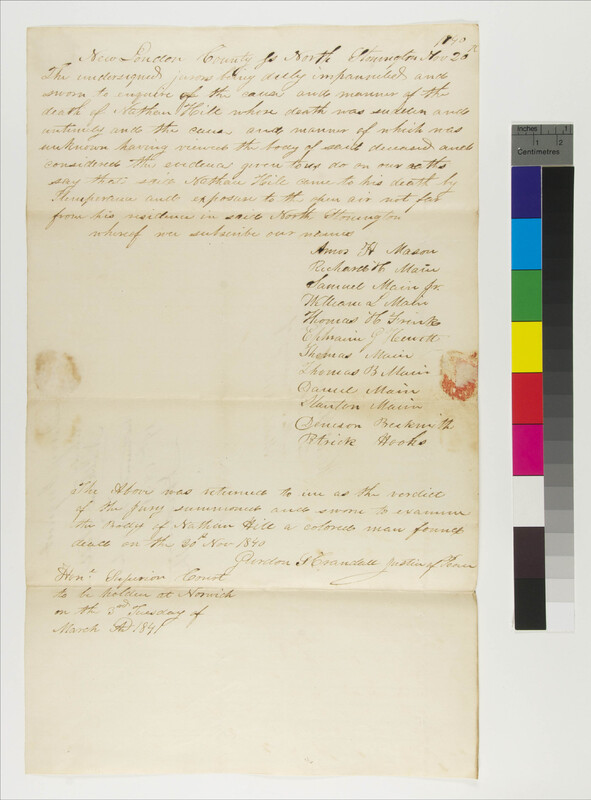 1840
New London County Ss North Stonington Nov 20th
The undersigned jurors being dully impannilled and
sworn to enquire of the cause and manner of the
death of Nathan Hill whose death was sudden and
untimely and the cause and manner of which was
unknown having viewed the body of said deceased and
considered the evidence given to us do on our oaths
say that said Nathan Hill came to his death by
Intemperance and exposure to the open air not far
from his residence in said North Stonington
whereof wee subscribe our names
Amos H Mason
Richard H Main
Samuel Main Jr.
William L Main
Thomas H Frink
Ephraim G Hewitt
Thomas Main
Thomas B Main
Daniel Main
Stanton Main
Denison Beckwith
Ptrick Hooks
The Above was returned to me as the verdict
of the jury summoned and sworn to examine
the body of Nathan Hill a colored man found
dead on the 20th Nov 1840
Gordon S Crandall Justice of Peace
Honl Superior Court
to be holden at Norwich
on the 3rd Tuesday of
March AD 1841
inches 1
1 2
Centimetres